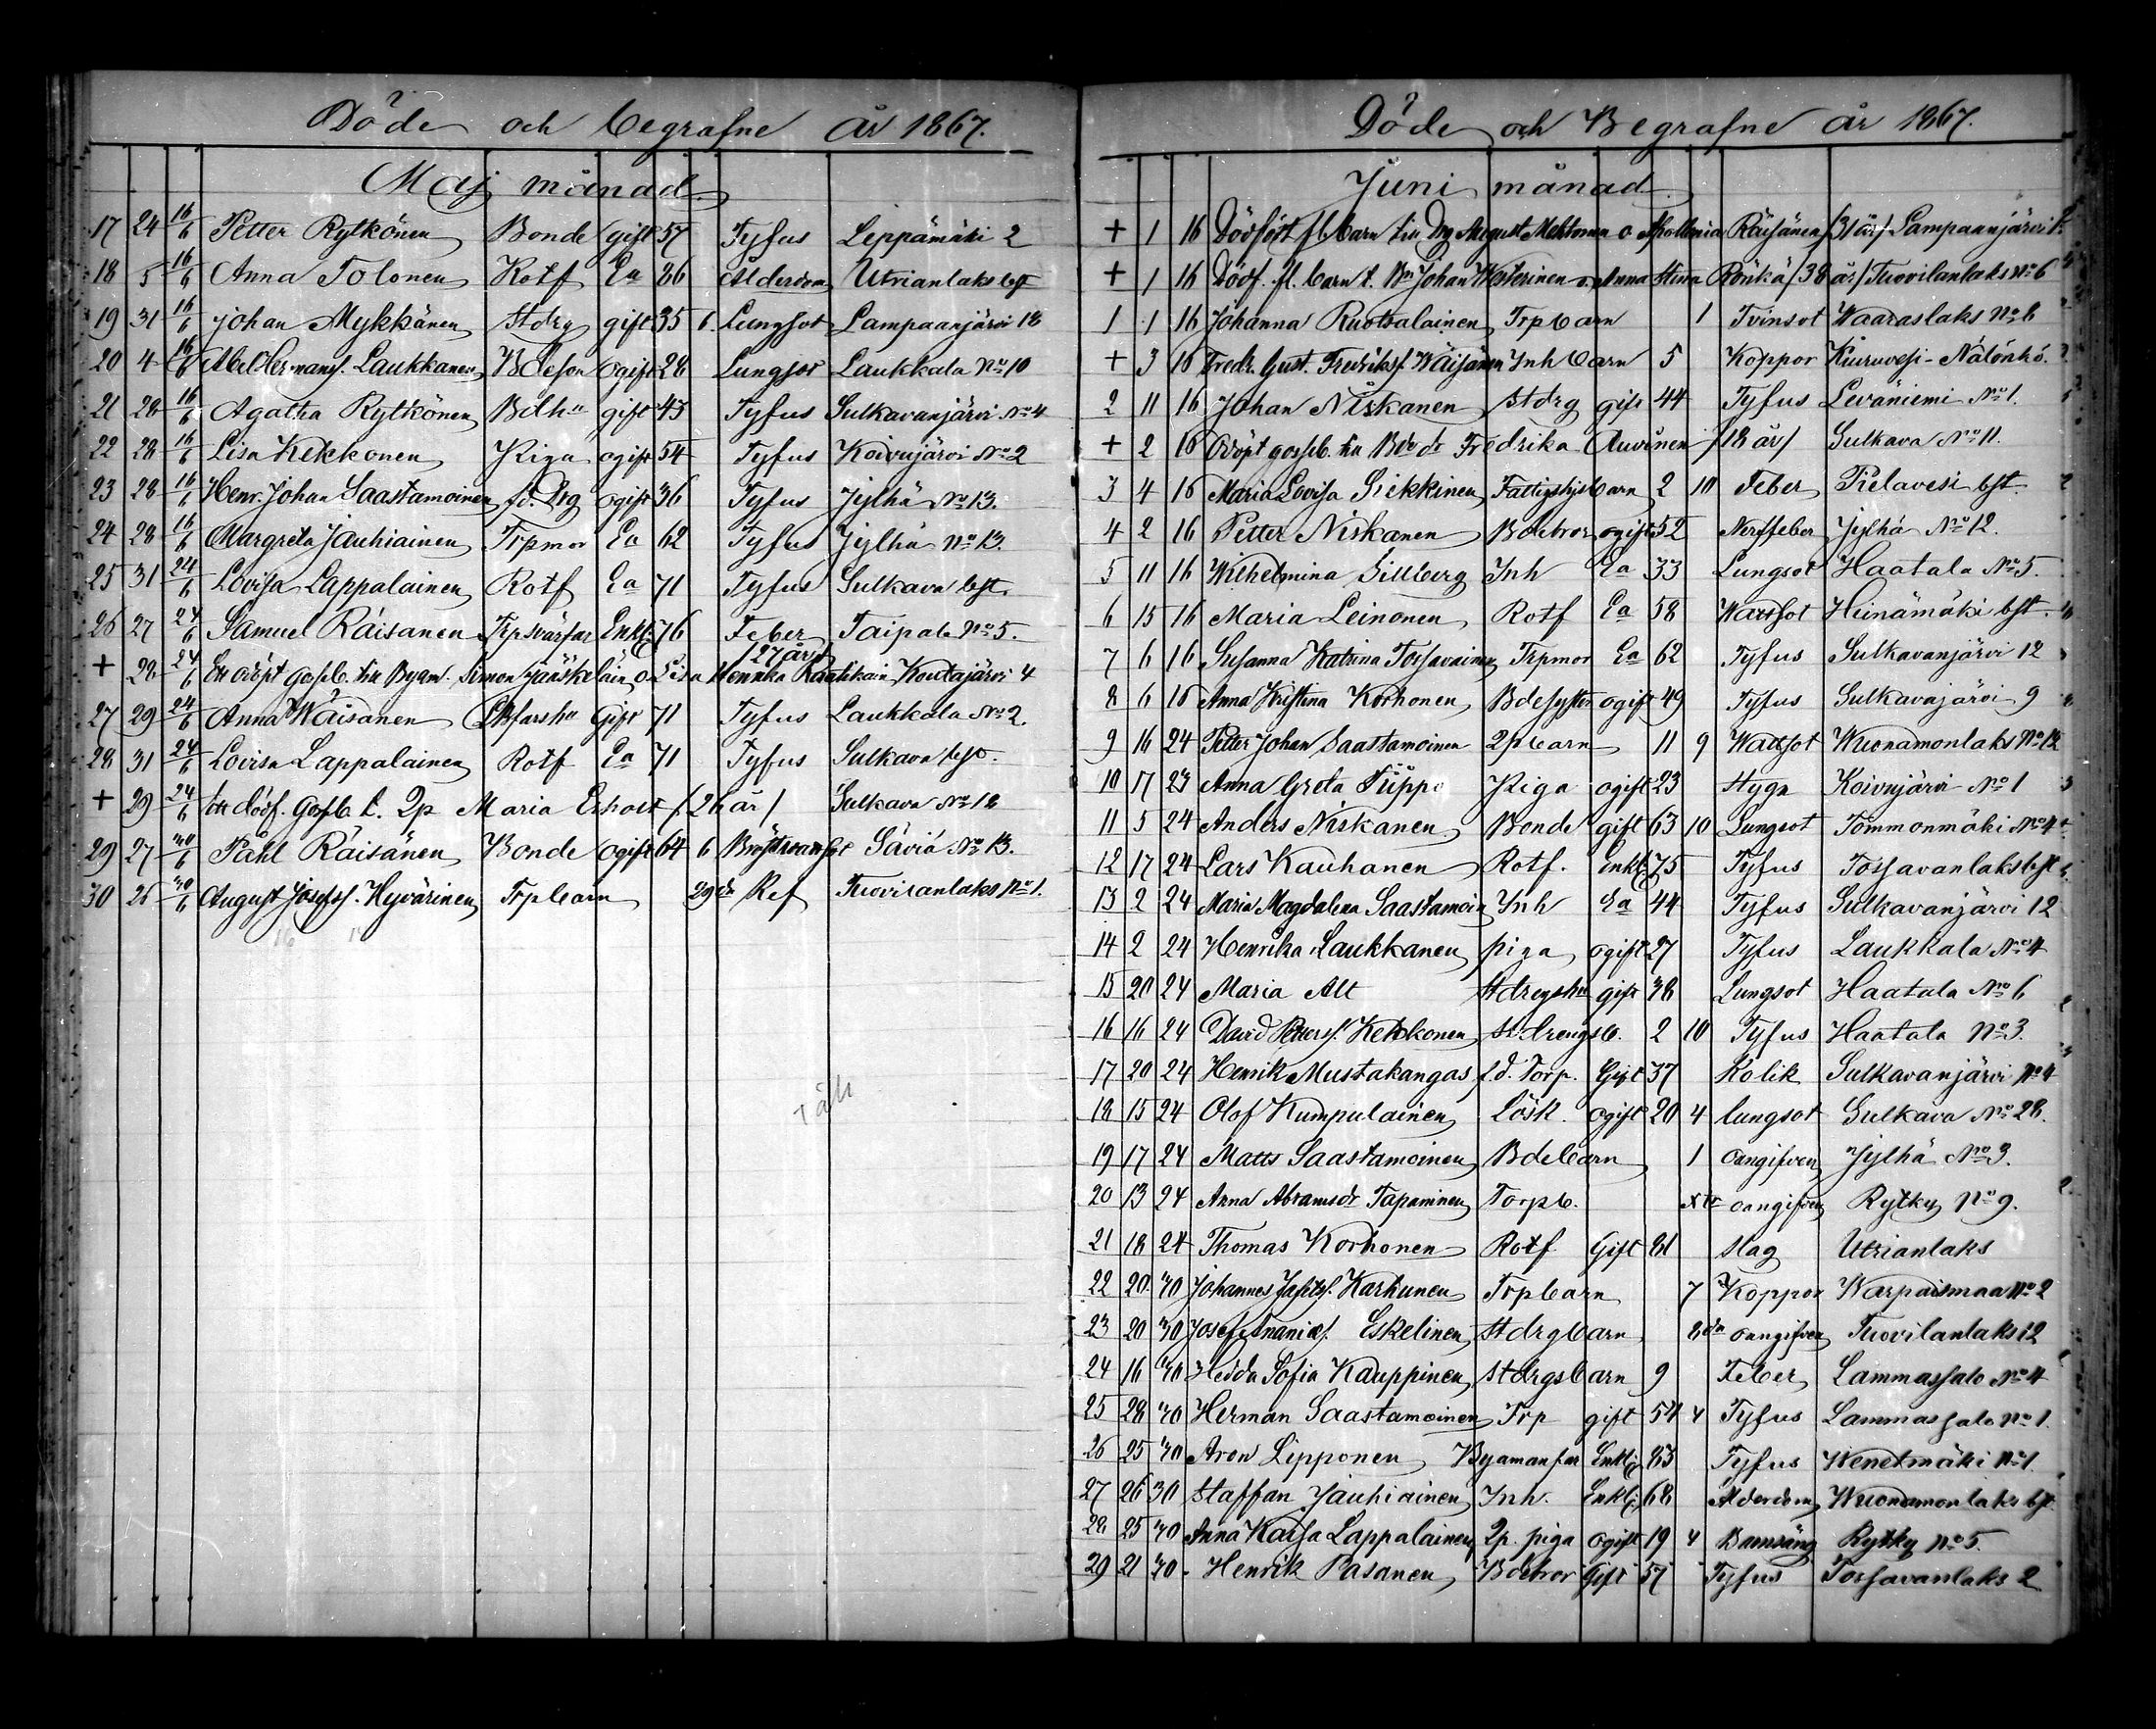 Döde och begrafne år 1867.
Maj månad
17 24 16/6 Petter Rytkönen Bonde gift 57 Tyfus Leppämäki 2
18 5 16/6 Anna Tolonen Rotf Ea 86 Alderdom Utrianlaks bst
19 31 16/6 Johan Mykkänen Stdrg gift 35 6 Lungsot Lampaanjärvi 18
20 4 16/6 Abel Hermanss. Laukkanen Bdeson ogift 28 Lungsot Laukkala No 10
21 28 16/6 Agatha Rytkönen Bdehu gift 45 Tyfus Sulkavanjärvi No 4
22 28 16/6 Lisa Kekkonen Piga ogift 54 Tyfus Koivujärvi No 2
23 28 16/6 Henr. Johan Saastamoinen fd. Drg ogift 36 Tyfus Jylhä No 13.
24 28 16/6 Margreta Jauhiainen Trpmor Ea 62 Tyfus Jylhä No 13.
25 31 24/6 Lovisa Lappalainen Rotf Ea 71 Tyfus Sulkava bst.
26 27 24/6 Samuel Räisänen Trpsvärfar Enkl: 76 Feber Taipale No 5.
+ 28 24/6 Ett odöpt gosseb. till Byam. Simon Jääskeläin o. Lisa Hennika Raatikain /27 år/ Koutajärvi 4
27 29 24/6 Anna Wäisänen Gift 71 Tyfus Laukkala No 2.
28 31 24/6 Lovisa Lappalainen Rotf Ea 71 Tyfus Sulkava bst.
+ 29 24/6 Ett dödf. Gosseb. t. 2p Maria Erholt /26 är/ Sulkava No 18
29 27 30/6 Påhl Räisänen Bonde ogift 64 6 Säviä No 13.
30 26 30/6 August Josefss. Hyvärinen Trpbarn 29 dr Ref Tuovilanlaks No 1.
Döde och Begrafne år 1867.
Juni månad
+ 1 16 Dödfödt fl. barn till Drg August Mehtonen o Apollonia Räisänen /31 är/ Lampaanjärvi
+ 1 16 Dödf. fl. barn t. Bn Johan Westerinen o. Anna Stina Rönkä /38 år/ Tuovilanlaks No 6
1 1 16 Johanna Ruotsalainen Trpbarn 1 Tvinsot Waaraslaks No 8
+ 3 16 Fredr. Gust. Fredrikss. Wäisänen Inh barn 5 Koppor Kiuruvesi - Nälönkö.
2 11 16 Johan Niskanen Stdrg gift 44 Tyfus Leväniemi No 1.
+ 2 16 Odöpt gosseb. till Bdedr Fredrika Auvinen /18 år/ Sulkava No 11.
3 4 16 Maria Lovisa Siekkinen Fattighjsbarn 2 10 Feber Pielavesi bst.
4 2 16 Petter Niskanen Bdebror ogift 52 Nerffeber Jylhä No 12.
5 11 16 Wilhelmina Sillberg Inh Ea 33 Lungsot Haatala No 5.
6 15 16 Maria Leinonen Rotf Ea 58 Wattsot Heinämäki bst.
7 6 16 Susanna Katrina Tossavainen Trpmor Ea 62 Tyfus Sulkavanjärvi 12
8 6 16 Anna Kristina Korhonen Bdesyster ogift 49 Tyfus Sulkavajärvi 9
9 16 24 Petter Johan Saastamoinen 2pbarn 11 9 Wattsot Wuonamonlaks No 12
10 17 23 Anna Greta Piippo Piga ogift 23 Styga Koivujärvi No 1
11 5 24 Anders Niskanen Bonde gift 63 10 Lungsot Tommonmäki No 4
12 17 24 Lars Kauhanen Rotf. Enkl: 75 Tyfus Tossavanlaks bst
13 2 24 Maria Magdalena Saastamoin Inh Ea 44 Tyfus Sulkavanjärvi 12
14 2 24 Henrika Laukkanen piga ogift 27 Tyfus Laukkala No 4
15 20 24 Maria Alt Stdrgshu gift 38 Lungsot Haatala No 6
16 16 24 David Petterss. Kekkonen St:drengsb. 2 10 Tyfus Haatala No 3.
17 20 24 Henrik Mustakangas f.d. Torp. Gift 37 Kolik Sulkavanjärvi No 4
18 15 24 Olof Kumpulainen Lösk. ogift 20 4 lungsot Sulkava No 28.
19 17 24 Matts Saastamoinen Bdebarn 1 oangifven Jylhä No 3.
20 13 24 Anna Abramsdr Tapaninen Torpb. oangifven Rytky No 9.
21 18 24 Thomas Korhonen Rotf Gift 81 Slag Utrianlaks
22 20 30 Johannes Karhunen Trpbarn 7 Koppor Warpaismaa No 2
23 20 30 Josef Ananiæs. Eskelinen Stdrgbarn 8 dr oangifven Tuovilanlaks 12
24 16 30 Hedda Sofia Kauppinen Stdrgsbarn 9 Feber Lammassalo No 4
25 28 30 Herman Saastamoinen Trp gift 54 4 Tyfus Lammassalo No 1.
26 25 30 Aron Lipponen Byamanfar Enkl: 83 Tyfus Wenetmäki No 1.
27 26 30 Staffan Jauhiainen Inh. Enkl: 68 Alderdom Wuonamonlaks bst
28 25 30 Anna Kaisa Lappalainen 2p. piga ogift 19 4 Barnsäng Rytky No 5.
29 21 30 Henrik Pasanen Bdebror Gift 57 Tyfus Tossavanlaks 2